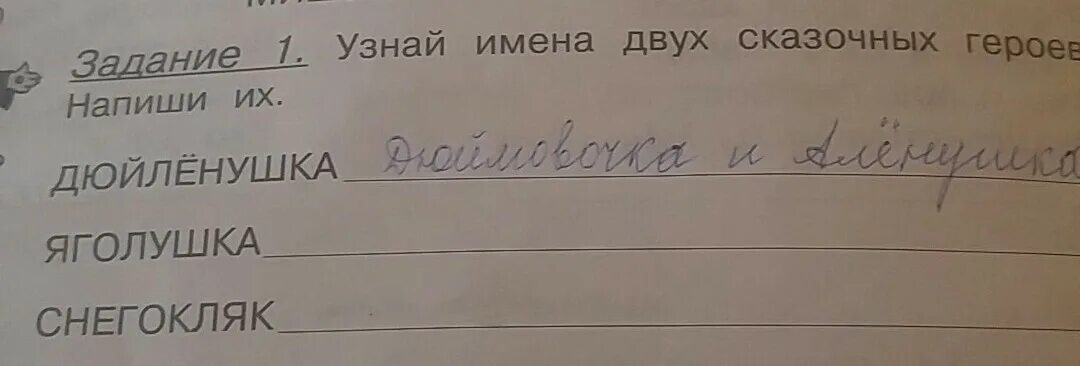 Задание 1. Узнай имена двух сказочных героев
Напиши их.
ДЮЙЛЁНУШКА Дюймовочка и Алёнушка
ЯГОЛУШКА
СНЕГОКЛЯК